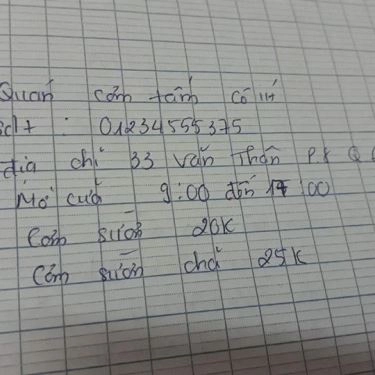 Quán cơm tấm cô út
sdt : 01234555375
địa chỉ 33 văn Thân P8 Q
Mở cửa 9:00 đến 17:00
Cơm sườn 20K
Cơm sườn chả 25K